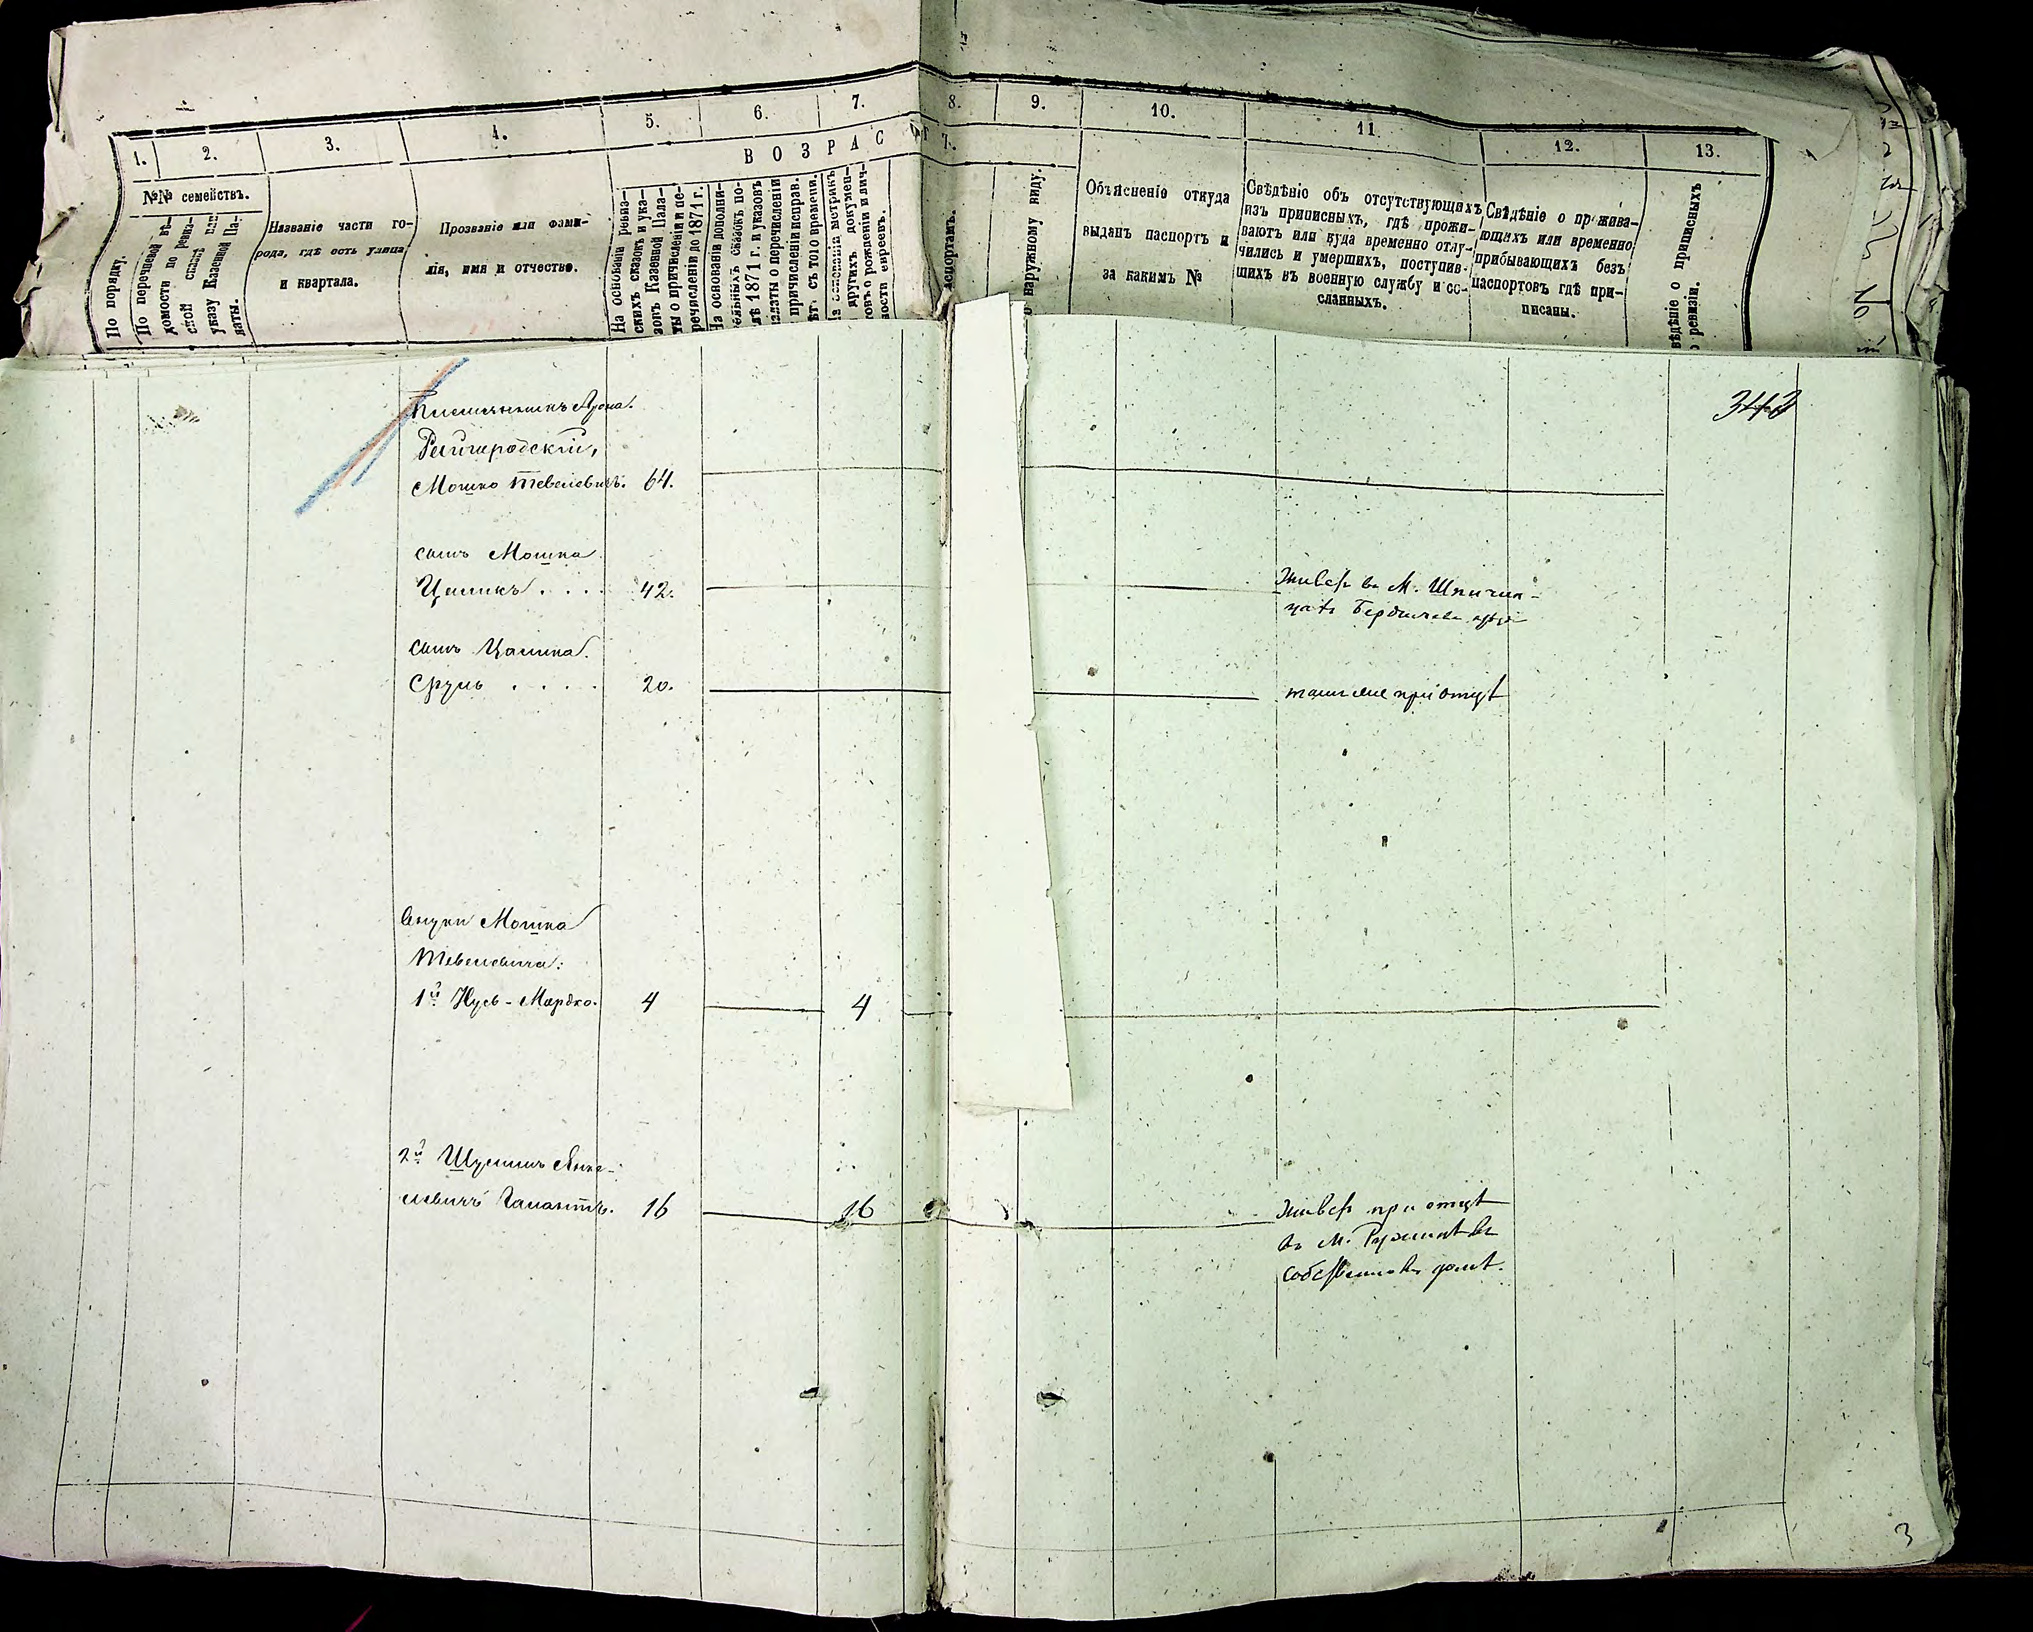 1. 2. 3. 4. 5. 6. 7. 8. 9. 10. 11 12. 13.
ВОЗРАСТЪ.
№№ семействъ.
По порядку.
По перечневой вѣ-
домости по ревиз-
ской сказкѣ или
указу Казенной Па-
латы.
Названіе части го-
рода, гдѣ есть улица
и квартала.
Прозваніе или фами-
лія, имя и отчество.
На основаніи ревиз-
скихъ сказокъ и ука-
зовъ Казенной Пала-
ты о причисленіи и пе-
речисленіи до 1871 г.
На основаніи дополни-
тельныхъ сказокъ по-
слѣ 1871 г. и указовъ
палаты о перечисленіи
причисленіи исправ.
лѣтъ съ того времени.
На основаніи метрикъ
и другихъ докумен-
товъ о рожденіи и лич-
ности евреевъ.
паспортамъ.
наружному виду.
Объясненіе откуда
выданъ паспортъ и
за какимъ №
Свѣдѣніе объ отсутствующихъ
изъ приписныхъ, гдѣ прожи-
ваютъ или куда временно отлу-
чились и умершихъ, поступив-
шихъ въ военную службу и сс-
сланныхъ.
Свѣдѣніе о прожива-
ющихъ или временно
прибывающихъ безъ
паспортовъ гдѣ при-
писаны.
Свѣдѣніе о приписныхъ
ревизіи.
343
Племянникъ Арона.
Рейгородскій,
Мошко Тевелевичъ. 64.
сынъ Мошка
Цаликъ . . . . 42. Живетъ въ М. Шпичин-
цахъ Бердичева уѣзд
сынъ Цалика.
Сруль . . . . 20. тамже при отцѣ
Внуки Мошка
Тевелевича:
1й Нусь-Мордко. 4 4
2й Шулимъ Янке-
левичъ Галантъ. 16 16 Живетъ при отцѣ
въ М. Ружинѣ въ
собственномъ домѣ.
3